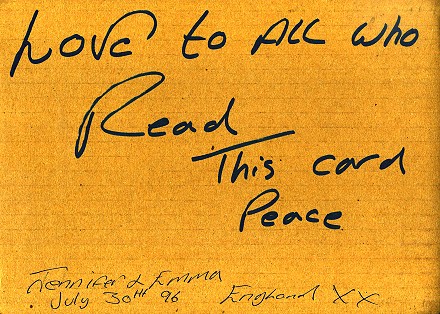 Love to ALL who
Read
This card
Peace
Jennifer & Emma
July 30th 96 England XX